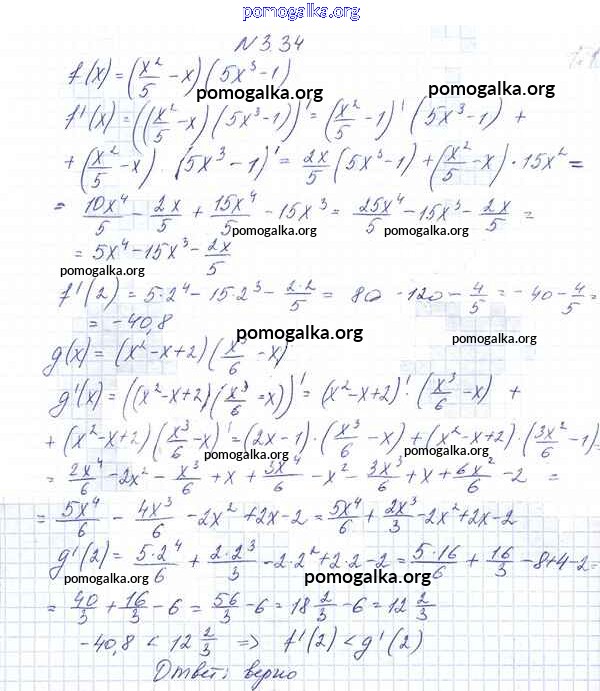 pomogalka.org
N 3.34
f(x) = (x²/5 − x)(5x³ − 1)
pomogalka.org pomogalka.org
f'(x) = ((x²/5 − x)(5x³ − 1))' = (x²/5 − 1)' (5x³ − 1) +
+ (x²/5 − x) · (5x³ − 1)' = 2x/5 (5x³ − 1) + (x²/5 − x) · 15x² =
= 10x⁴/5 − 2x/5 + 15x⁴/5 − 15x³ = 25x⁴/5 − 15x³ − 2x/5 =
pomogalka.org pomogalka.org
= 5x⁴ − 15x³ − 2x/5
pomogalka.org pomogalka.org
f'(2) = 5·2⁴ − 15·2³ − 2·2/5 = 80 − 120 − 4/5 = −40 − 4/5 =
= −40,8
pomogalka.org pomogalka.org
g(x) = (x² − x + 2)(x³/6 − x)
g'(x) = ((x² − x + 2)(x³/6 − x))' = (x² − x + 2)' · (x³/6 − x) +
+ (x² − x + 2)(x³/6 − x)' = (2x − 1) · (x³/6 − x) + (x² − x + 2) · (3x²/6 − 1) =
pomogalka.org pomogalka.org
= 2x⁴/6 − 2x² − x³/6 + x + 3x⁴/6 − x² − 3x³/6 + x + 6x²/6 − 2 =
= 5x⁴/6 − 4x³/6 − 2x² + 2x − 2 = 5x⁴/6 + 2x³/3 − 2x² + 2x − 2
g'(2) = 5·2⁴/6 + 2·2³/3 − 2·2² + 2·2 − 2 = 5·16/6 + 16/3 − 8 + 4 − 2 =
pomogalka.org pomogalka.org
= 40/3 + 16/3 − 6 = 56/3 − 6 = 18 2/3 − 6 = 12 2/3
−40,8 < 12 2/3 ⇒ f'(2) < g'(2)
Ответ: верно